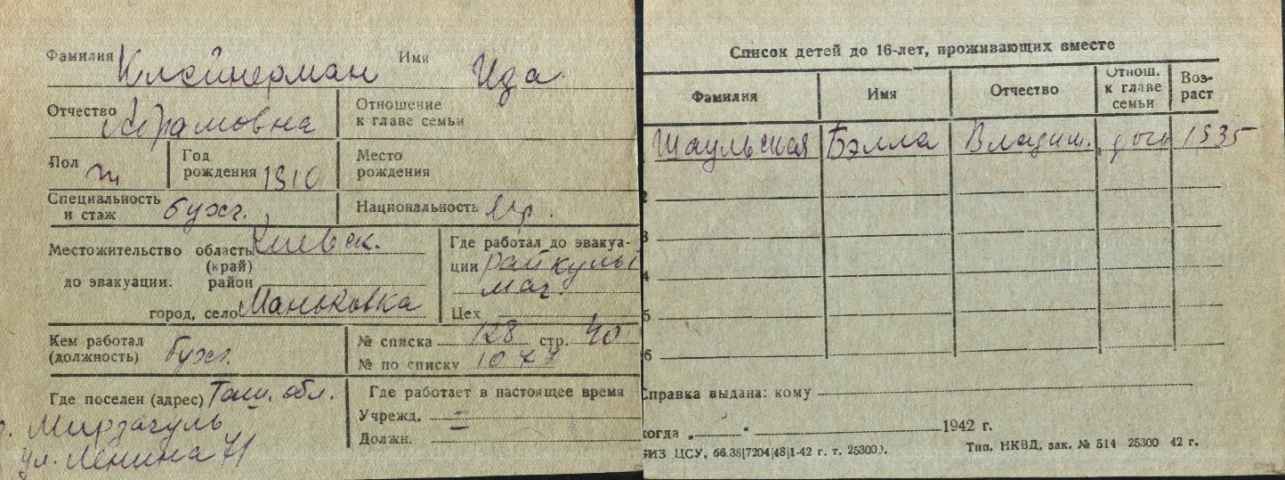 Фамилия Клейнерман Имя Ида
Отчество Абрамовна Отношение к главе семьи
Пол ж Год рождения 1910 Место рождения
Специальность и стаж бухг. Национальность евр.
Местожительство до эвакуации: область (край) Киевск.
район
город, село Маньковка
Где работал до эвакуации райкульт
маг.
Цех
Кем работал (должность) бухг.
№ списка 128 стр. 40
№ по списку 1077
Где поселен (адрес) Таш. обл.
Мирзачуль
ул. Ленина 71
Где работает в настоящее время
Учрежд. –
Должн.
Список детей до 16-лет, проживающих вместе
Фамилия Имя Отчество Отнош. к главе семьи Возраст
Шаульская Бэлла Владим. дочь 1935
2
3
4
5
6
Справка выдана: кому
когда „ “ 1942 г.
БИЗ ЦСУ, 66.38|7204|48|1-42 г. т. 25300). Тип. НКВД, зак. № 514 25300 42 г.